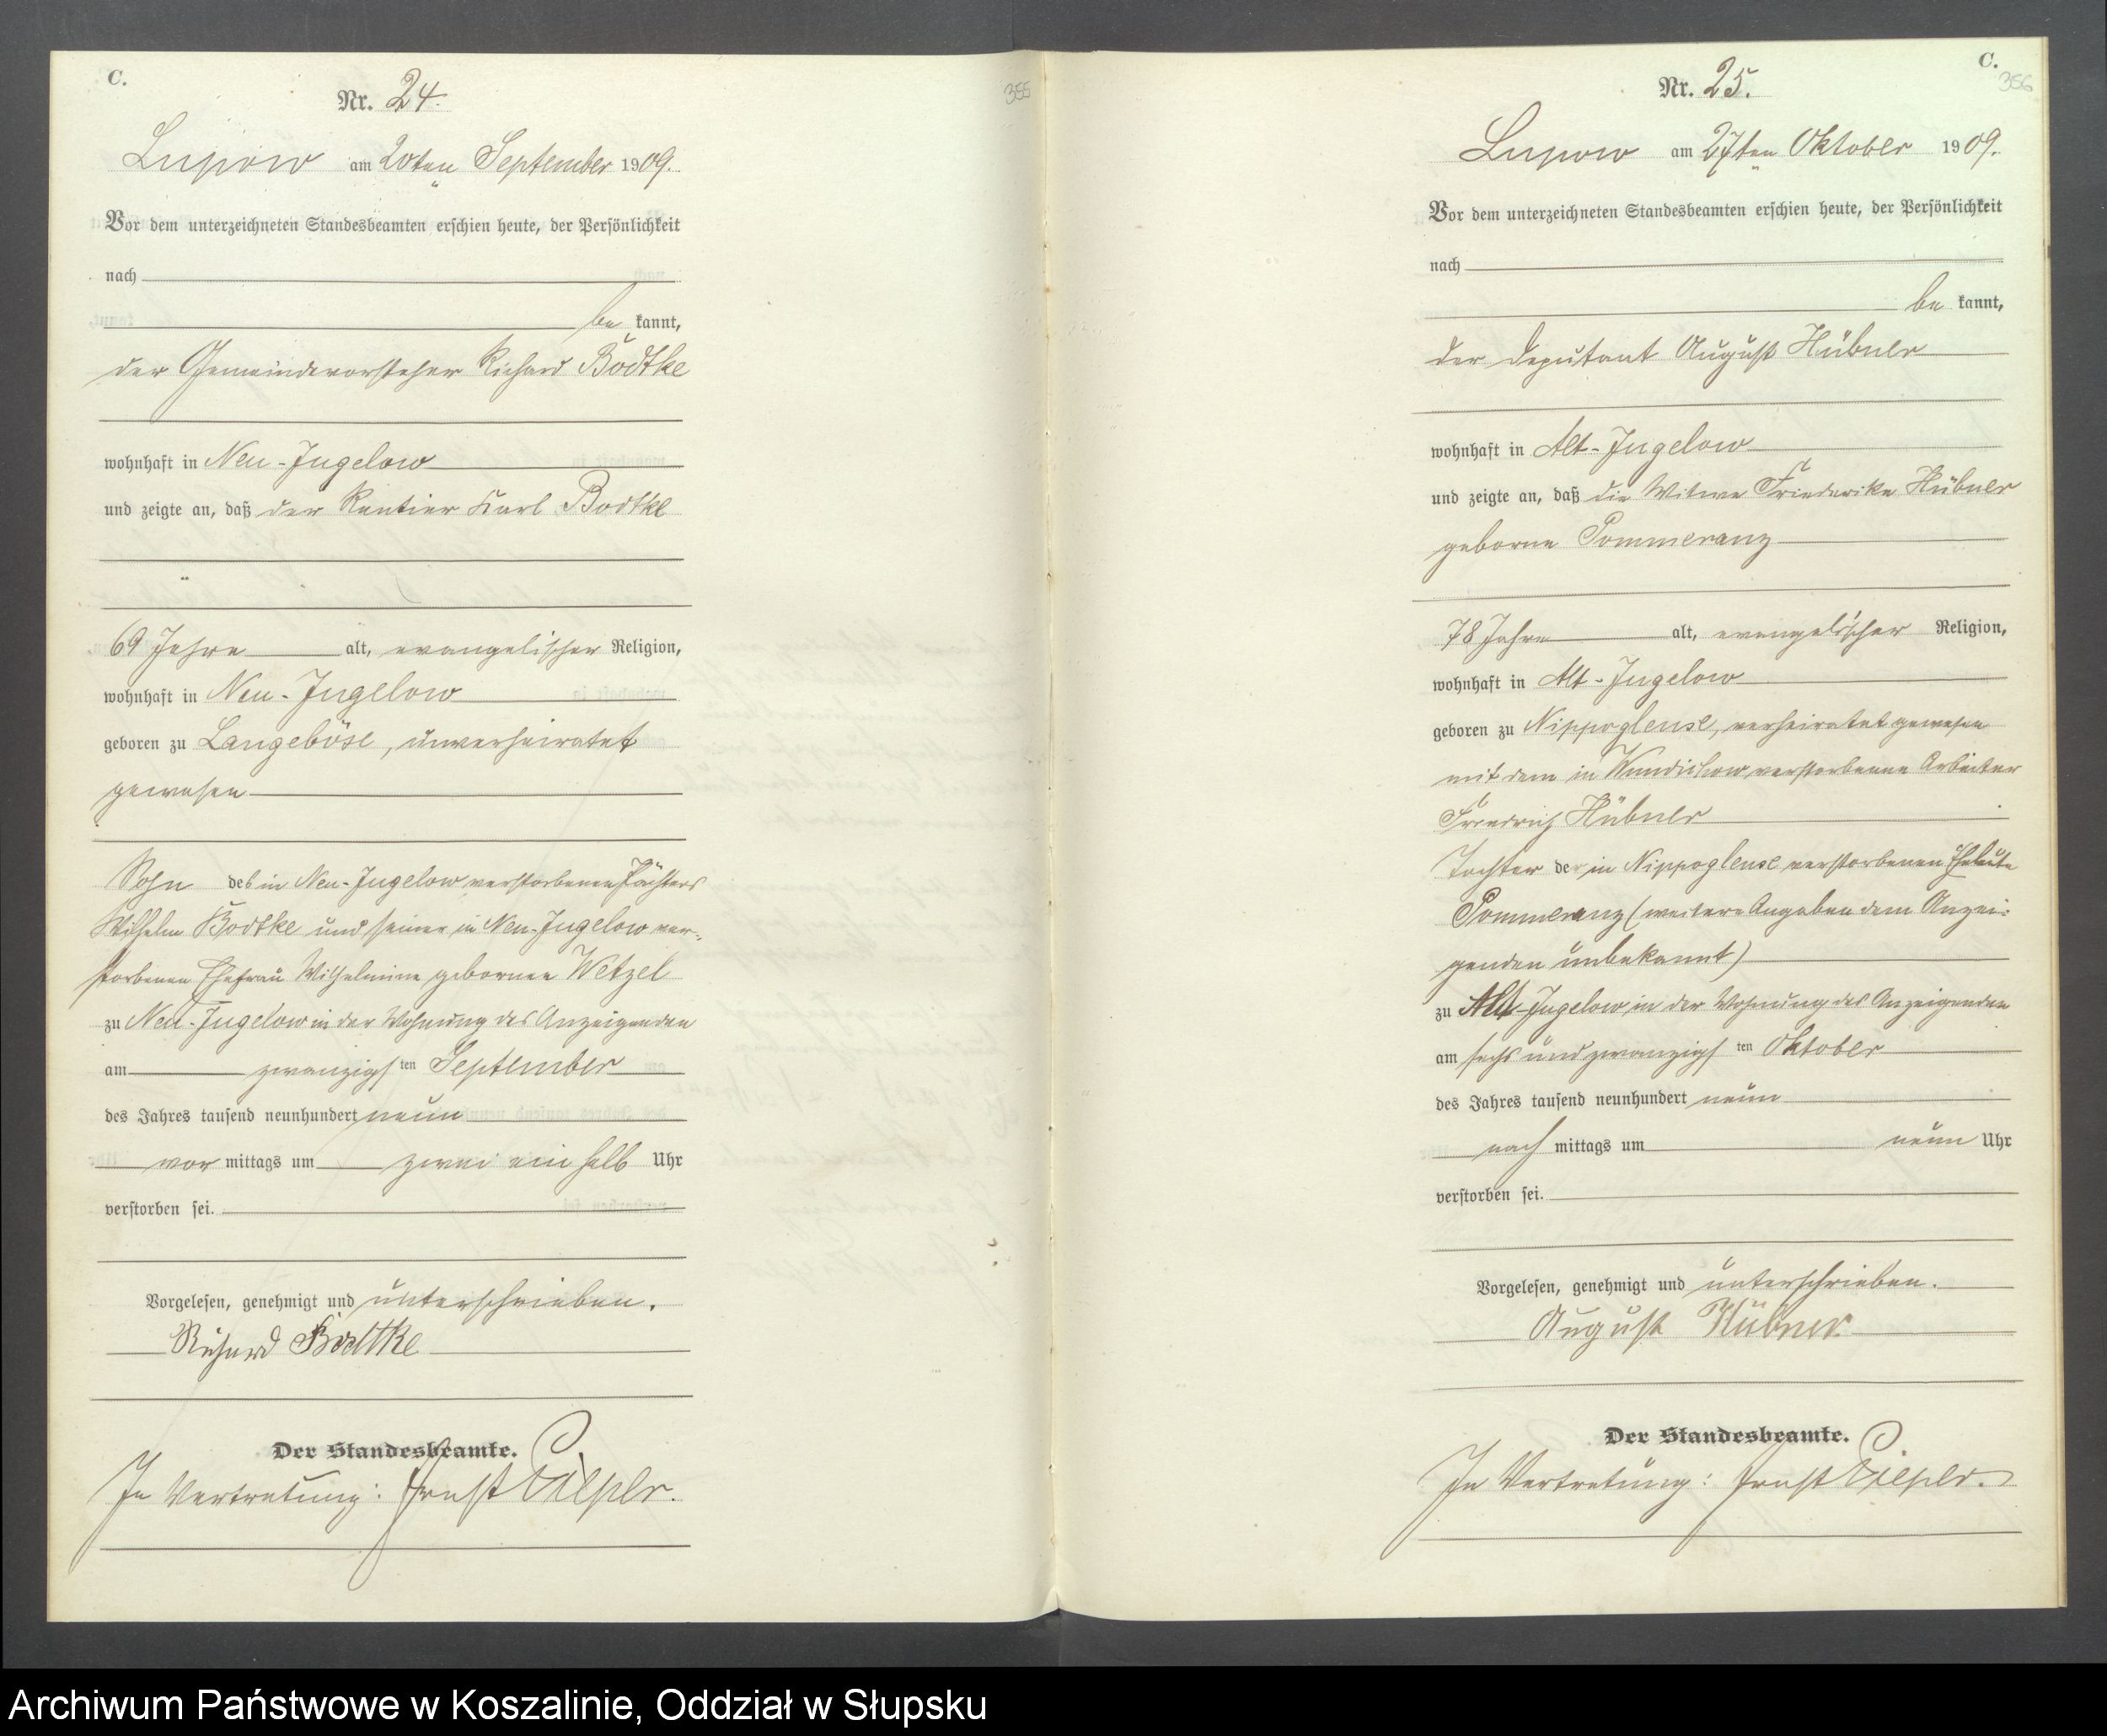 C.
355
Nr. 24.
Lupow am 20ten September 1909.
Vor dem unterzeichneten Standesbeamten erschien heute, der Persönlichkeit
nach
be kannt,
der Gemeindevorsteher Richard Bodtke
wohnhaft in Neu-Jugelow
und zeigte an, daß der Rentier Karl Bodtke
69 Jahre alt, evangelischer Religion,
wohnhaft in Neu-Jugelow
geboren zu Langeböse, unverheiratet
gewesen
Sohn des in Neu-Jugelow verstorbenen Pächters
Wilhelm Bodtke und seiner in Neu-Jugelow ver-
storbenen Ehefrau Wilhelmine geborenen Wetzel
zu Neu-Jugelow in der Wohnung des Anzeigenden
am zwanzigsten September
des Jahres tausend neunhundert neun
vor mittags um zwei ein halb Uhr
verstorben sei.
Vorgelesen, genehmigt und unterschrieben.
Richard Bodtke
Der Standesbeamte.
In Vertretung: Ernst Pieper.
C.
356
Nr. 25.
Lupow am 27ten Oktober 1909.
Vor dem unterzeichneten Standesbeamten erschien heute, der Persönlichkeit
nach
be kannt,
der Deputant August Hübner
wohnhaft in Alt-Jugelow
und zeigte an, daß die Witwe Friederike Hübner
geborne Pommeranz
78 Jahre alt, evangelischer Religion,
wohnhaft in Alt-Jugelow
geboren zu Nippoglense, verheiratet gewesen
mit dem in Wundichow verstorbenen Arbeiter
Friedrich Hübner
Tochter der in Nippoglense verstorbenen Eheleute
Pommeranz (weitere Angaben dem Anzei-
genden unbekannt)
zu Alt-Jugelow in der Wohnung des Anzeigenden
am sechs und zwanzigsten Oktober
des Jahres tausend neunhundert neun
nach mittags um neun Uhr
verstorben sei.
Vorgelesen, genehmigt und unterschrieben.
August Hübner
Der Standesbeamte.
In Vertretung: Ernst Pieper.
Archiwum Państwowe w Koszalinie, Oddział w Słupsku